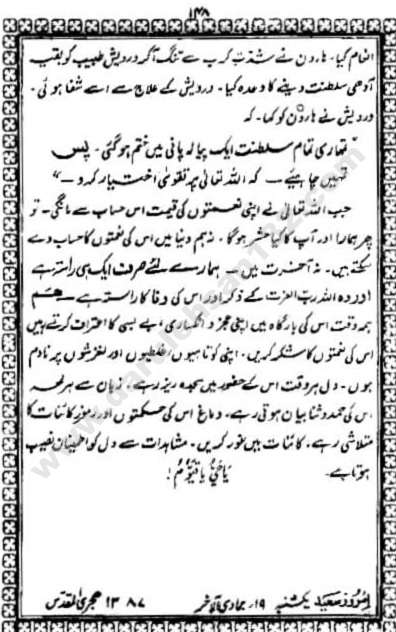 ۱۴۸
انعام کیا۔ ہارون نے شدت کرب سے تنگ آکر درویش طبیب کو بقیہ
آدھی سلطنت دینے کا وعدہ کیا۔ درویش کے علاج سے اسے شفا ہوئی۔
درویش نے ہارون کو کہا۔ کہ
"تمہاری تمام سلطنت ایک پیالہ پانی میں ختم ہوگئی۔ پس
تمہیں چاہیئے۔ کہ اللہ تعالیٰ پر تقویٰ اختیار کرو۔"
جب اللہ تعالیٰ نے اپنی نعمتوں کی قیمت اس حساب سے مانگی۔ تو
پھر ہمارا اور آپ کا کیا حشر ہوگا۔ نہ ہم دنیا میں اس کی نعمتوں کا حساب دے
سکتے ہیں۔ نہ آخرت میں۔ ہمارے لئے صرف ایک ہی راستہ ہے
اور وہ اللہ رب العزت کے ذکر اور اس کی وفا کا راستہ ہے۔ ہم
ہمہ وقت اس کی بارگاہ میں اپنی عجز و انکساری، بے بسی کا اعتراف کرتے ہیں
اس کی نعمتوں کا شکر کریں۔ اپنی کوتاہیوں غلطیوں اور لغزشوں پر نادم
ہوں۔ دل ہر وقت اس کے حضور میں سجدہ ریز رہے، زبان سے ہر لمحہ
اس کی حمد و ثنا بیان ہوتی رہے۔ دماغ اس کی حکمتوں اور رموز کائنات کا
متلاشی رہے۔ کائنات میں غور کریں۔ مشاہدات سے دل کو اطمینان نصیب
ہوتا ہے۔
یَا حَیُّ یَا قَیُّوْمُ!
امروز سعید یکشنبہ ۱۹ر جمادی الآخر ۱۳۸۷ ہجری المقدس
www.darulehsan
.com